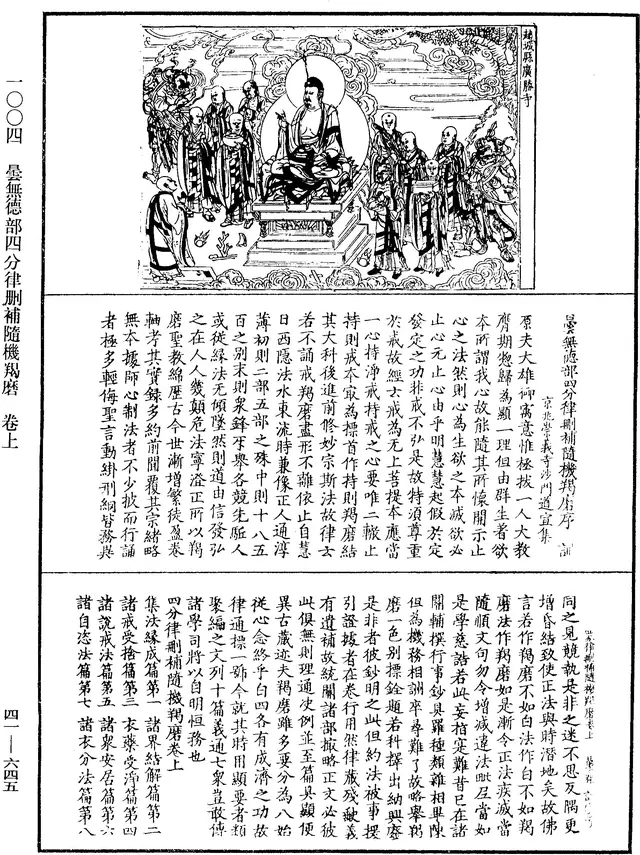 趙城縣廣勝寺
曇無德部四分律刪補隨機羯磨序　訓
京兆崇義寺沙門道宣集
原夫大雄御寓意惟拯拔一人大教
膺期惣歸為顯一理但由群生著欲
欲本所謂我心故能隨其所懷開示止
心之法然則心為生欲之本滅欲必
止心元止心由乎明慧慧起假於定
發定之功非戒不弘是故特須尊重
於戒故經云戒為无上菩提本應當
一心持淨戒持戒之心要唯二轍止
持則戒本最為標首作持則羯磨結
其大科後進前修妙宗斯法故律云
若不誦戒羯磨盡形不離依止自慧
日西隱法水東流時兼像正人通淳
薄初則二部五部之殊中則十八五
百之別末則衆鋒互舉各競先駈人
或從緣法无傾墜然則道由信發弘
之在人人幾顛危法寧澄正所以羯
磨聖教綿歷古今世漸增繁徒盈卷
軸考其實錄多約前聞覆其宗緒略
無本據師心制法者不少披而行誦
者極多輕侮聖言動絓刑網皆務異
四分律刪補隨機羯磨卷上
同之見競執是非之迷不思反隅更
增昏結致使正法與時潛地矣故佛
言若作羯磨不如白法作白不如羯
磨法作羯磨如是漸令正法疾滅當
隨順文句勿令增減違法毗尼當如
是學慈誥若此妄指寔難昔已在諸
關輔撰行事鈔具羅種類雜相畢陳
但為機務相訓卒尋難了故略舉羯
磨一色別標銓題若科擇出納興廢
是非者彼鈔明之此但約法被事援
引證據者在卷行用然律藏殘缺義
有遺補故統關諸部撮略正文必彼
此俱無則理通決例並至篇具顯便
異古藏迹夫羯磨雖多要分為八始
從心念終乎白四各有成濟之功故
律通標一号今就其時用顯要者類
聚編之文列十篇義通七衆豈敢傳
諸學司將以自明恒務也
四分律刪補隨機羯磨卷上
集法緣成篇第一　諸界結解篇第二
諸戒受捨篇第三　衣藥受淨篇第四
諸說戒法篇第五　諸衆安居篇第六
諸自恣法篇第七　諸衣分法篇第八
一〇〇四　曇無德部四分律刪補隨機羯磨　卷上
四一—六四五